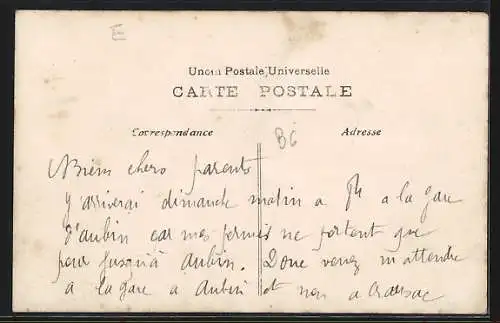 E
Union Postale Universelle
CARTE POSTALE
Correspondance
Adresse
B6
Biens chers parents
J'arriverai dimanche matin a 9h a la gare
d'aubin car mes permis ne portent que
pour jusqu'à Aubin. Donc venez m'attendre
a la gare a Aubin et non a Cransac